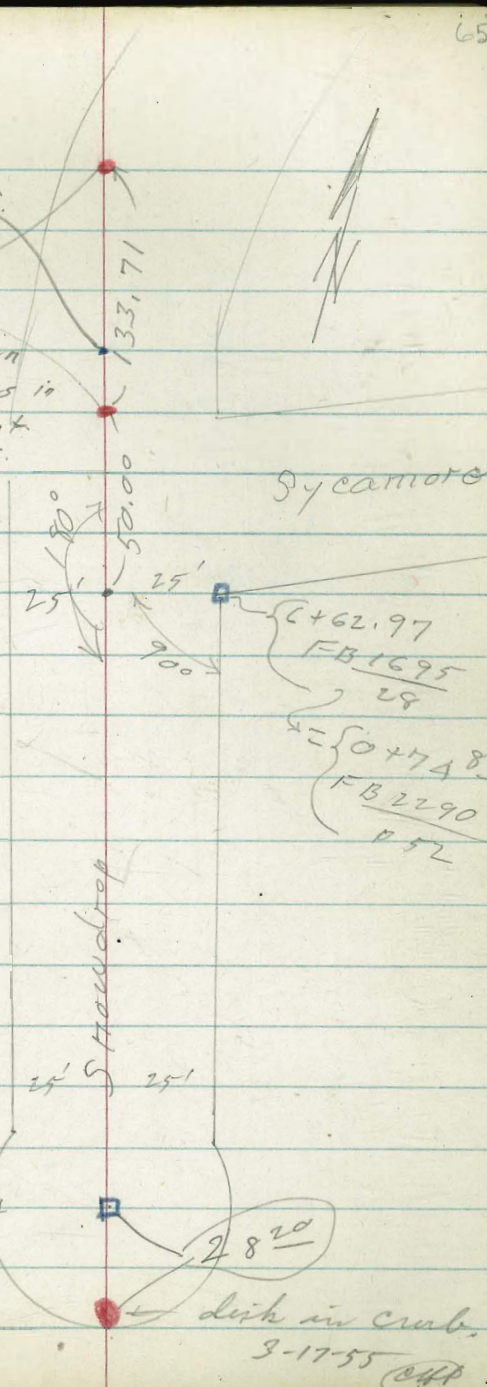 65
N
133.71
n
s in
Sycamore
50.00
180°
25'
25'
90°
6+62.97
FB 1695
28
= 0+74 8
FB 2290
p 52
Snowdrop
25'
25'
28 20
disk in curb.
3-17-55